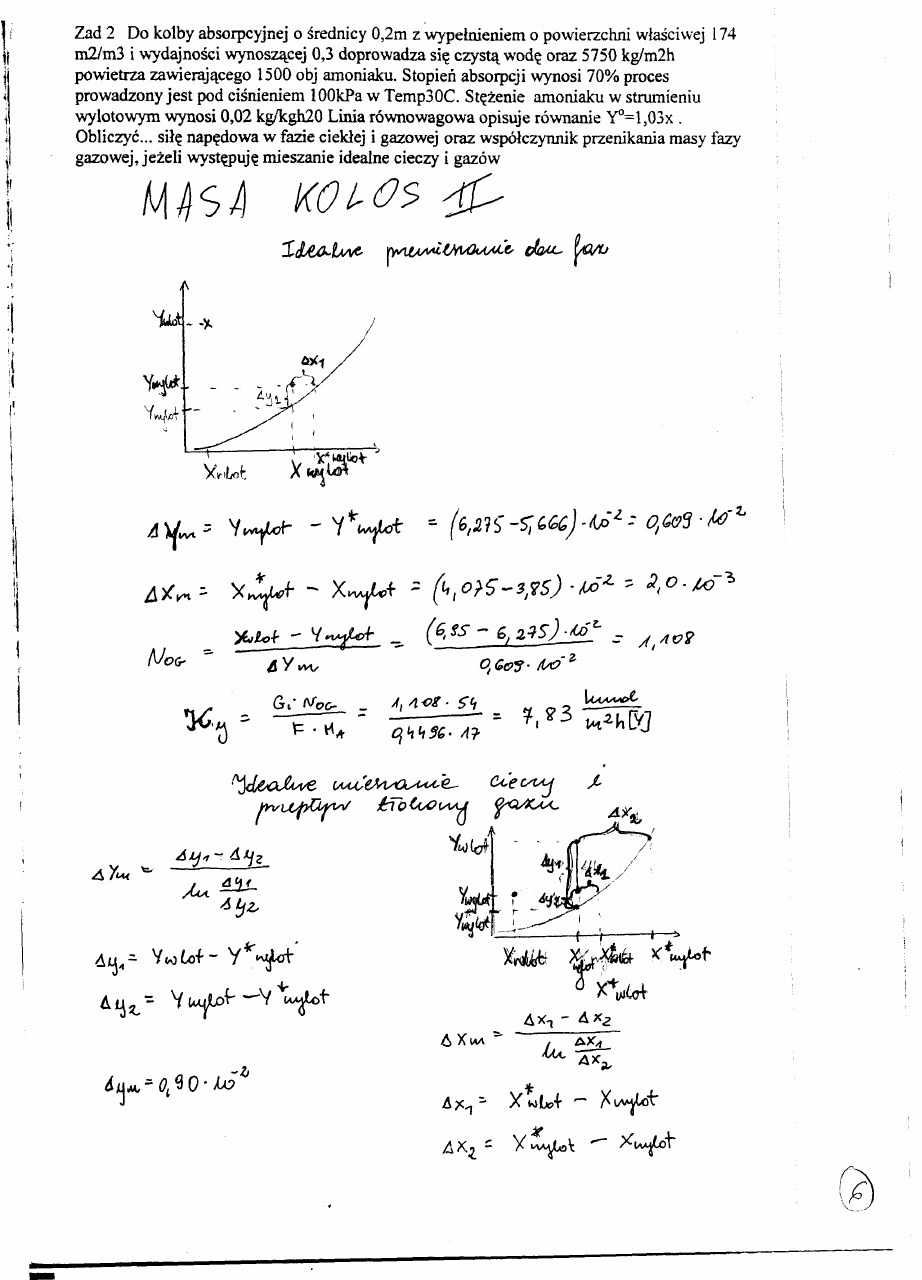 Zad 2 Do kolby absorpcyjnej o średnicy 0,2m z wypełnieniem o powierzchni właściwej 174
m2/m3 i wydajności wynoszącej 0,3 doprowadza się czystą wodę oraz 5750 kg/m2h
powietrza zawierającego 1500 obj amoniaku. Stopień absorpcji wynosi 70% proces
prowadzony jest pod ciśnieniem 100kPa w Temp30C. Stężenie amoniaku w strumieniu
wylotowym wynosi 0,02 kg/kgh20 Linia równowagowa opisuje równanie Y°=1,03x .
Obliczyć... siłę napędowa w fazie ciekłej i gazowej oraz współczynnik przenikania masy fazy
gazowej, jeżeli występuję mieszanie idealne cieczy i gazów
MASA KOLOS II
Idealne dwu faz
Ywlot -x
Δx1
Ywylot
Δy1
Ywylot
X*wylot
Xwlot Xwylot
ΔYm = Ywylot - Y*wylot = (6,275 - 5,666) · 10⁻² = 0,609 · 10⁻²
ΔXm = X*wylot - Xwylot = (4,075 - 3,85) · 10⁻² = 2,0 · 10⁻³
NOG = Ywlot - Ywylot / ΔYm = (6,95 - 6,275) · 10⁻² / 0,609 · 10⁻² = 1,108
Ky = Gi · NOG / F · MA = 1,108 · 54 / 0,4496 · 17 = 7,83 kmol / m²h[Y]
Idealne mieszanie cieczy i
przepływ tłokowy gazu
Δx2
Ywlot
ΔYm = Δy1 - Δy2 / ln Δy1 / Δy2
Δy1
Ywylot Δy2
Ywylot
Δy1 = Ywlot - Y*wylot
Xwlot Xwylot X*wylot
X*wlot
Δy2 = Ywylot - Y*wylot
ΔXm = Δx1 - Δx2 / ln Δx1 / Δx2
Δym = 0,90 · 10⁻²
Δx1 = X*wlot - Xwylot
Δx2 = X*wylot - Xwylot
6